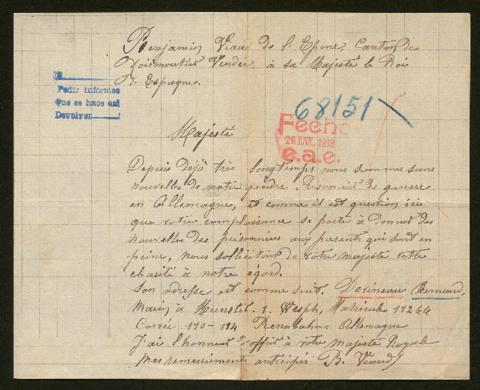 Benjamin Viaud de l'Epine, Canton de
Noirmoutier Vendée, à sa Majesté le Roi
D'Espagne.
Pedir informes
Que se hace así
Devolver
68151
Fecho
26 1918
e.a.e.
Majesté
Depuis déjà très longtemps nous sommes sans
nouvelles de notre gendre Prisonnier de guerre
en Allemagne, et comme il est question ici
que votre complaisance se porte à donner des
nouvelles des prisonniers aux parents qui sont en
peine, nous sollicitons de votre majesté cette
charité à notre égard.
Son adresse est comme suit. Devineau Fernand
à Munster. 1. Westph, Matricule 11244
Carré 110-114 Renabahn Allemagne
J'ai l'honneur d'offrir à votre majesté Royale
Mes remerciements anticipés B. Viaud